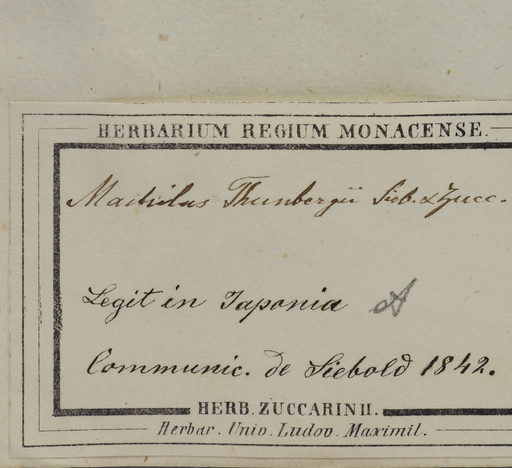 HERBARIUM REGIUM MONACENSE.
Machilus Thunbergii Sieb. & Zucc.
Legit in Japonia
Communic. de Siebold 1842.
HERB. ZUCCARINII.
Herbar. Univ. Ludov. Maximil.